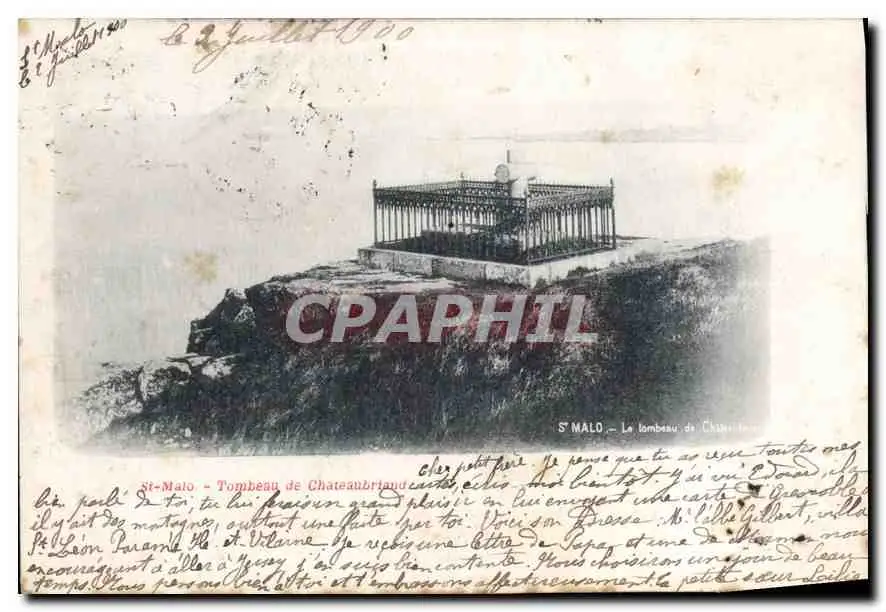 St Malo
le 2 Juillet 1900
le 2 Juillet 1900
CPAPHIL
St MALO. - Le tombeau de Chateau
St-Malo - Tombeau de Chateaubriand
cher petit frère Je pense que tu as reçu toutes mes
cartes, écris moi bientôt. J'ai vu Edouard, il a
bien parlé de toi, tu lui ferais un grand plaisir en lui envoyant une carte de Grenoble
il y ait des montagnes, surtout une faite par toi. Voici son adresse. Mr l'abbé Gilbert, villa
St Léon Paramé Ile et Vilaine. Je reçois une lettre de Papa et une de Mame nous
encourageant à aller à Jersey j'en suis bien contente. Nous choisirons un jour de beau
temps. Nous pensons bien à toi et t'embrassons affectueusement ta petite sœur